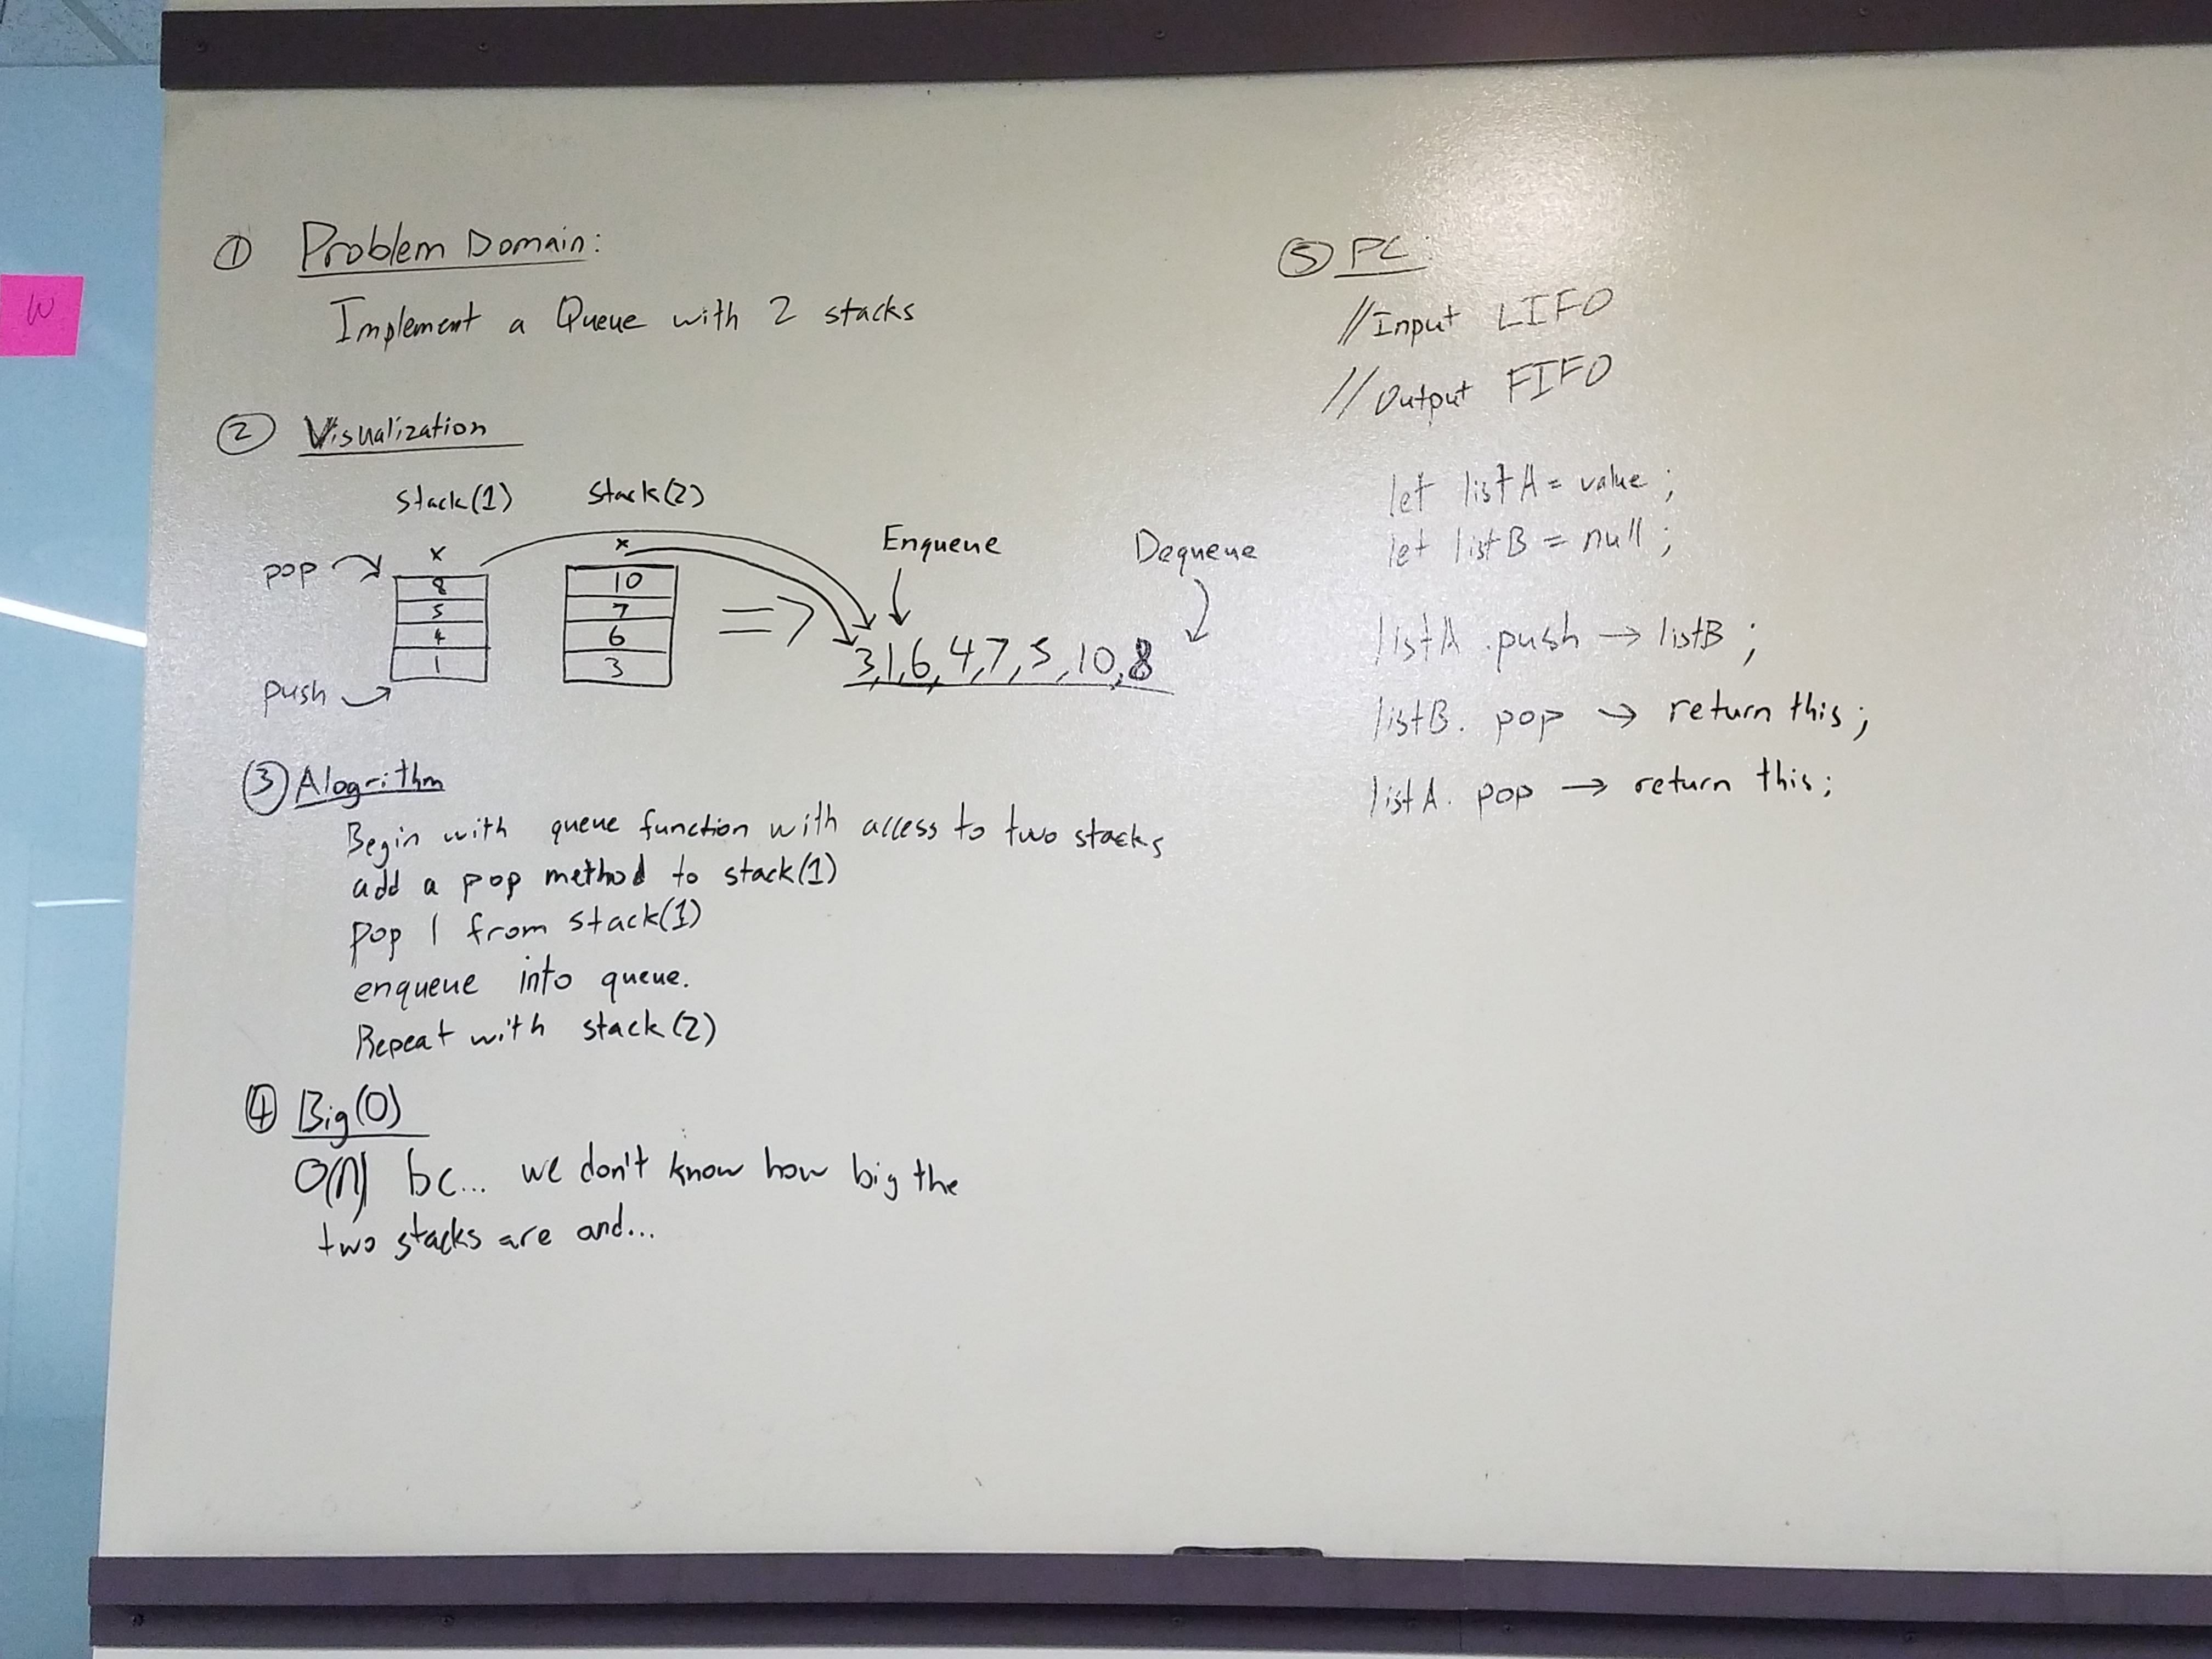 W
① Problem Domain:
Implement a Queue with 2 stacks
② Visualization
stack(1) stack(2)
Enqueue Dequeue
x x
pop
8 10
5 7
4 6
1 3
push
=> 3,1,6,4,7,5,10,8
③ Alogrithm
Begin with queue function with access to two stacks
add a pop method to stack(1)
pop 1 from stack(1)
enqueue into queue.
Repeat with stack(2)
④ Big(O)
O(n) bc... we don't know how big the
two stacks are and...
⑤ PC:
//Input LIFO
//Output FIFO
let listA = value;
let listB = null;
listA.push → listB;
listB. pop → return this;
listA. pop → return this;